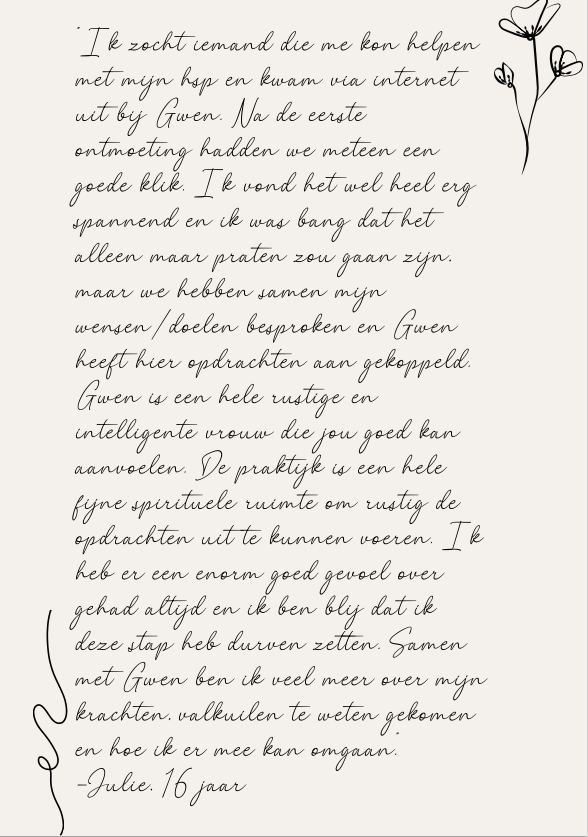 "Ik zocht iemand die me kon helpen
met mijn hsp en kwam via internet
uit bij Gwen. Na de eerste
ontmoeting hadden we meteen een
goede klik. Ik vond het wel heel erg
spannend en ik was bang dat het
alleen maar praten zou gaan zijn.
maar we hebben samen mijn
wensen/doelen besproken en Gwen
heeft hier opdrachten aan gekoppeld.
Gwen is een hele rustige en
intelligente vrouw die jou goed kan
aanvoelen. De praktijk is een hele
fijne spirituele ruimte om rustig de
opdrachten uit te kunnen voeren. Ik
heb er een enorm goed gevoel over
gehad altijd en ik ben blij dat ik
deze stap heb durven zetten. Samen
met Gwen ben ik veel meer over mijn
krachten, valkuilen te weten gekomen
en hoe ik er mee kan omgaan."
-Julie, 16 jaar